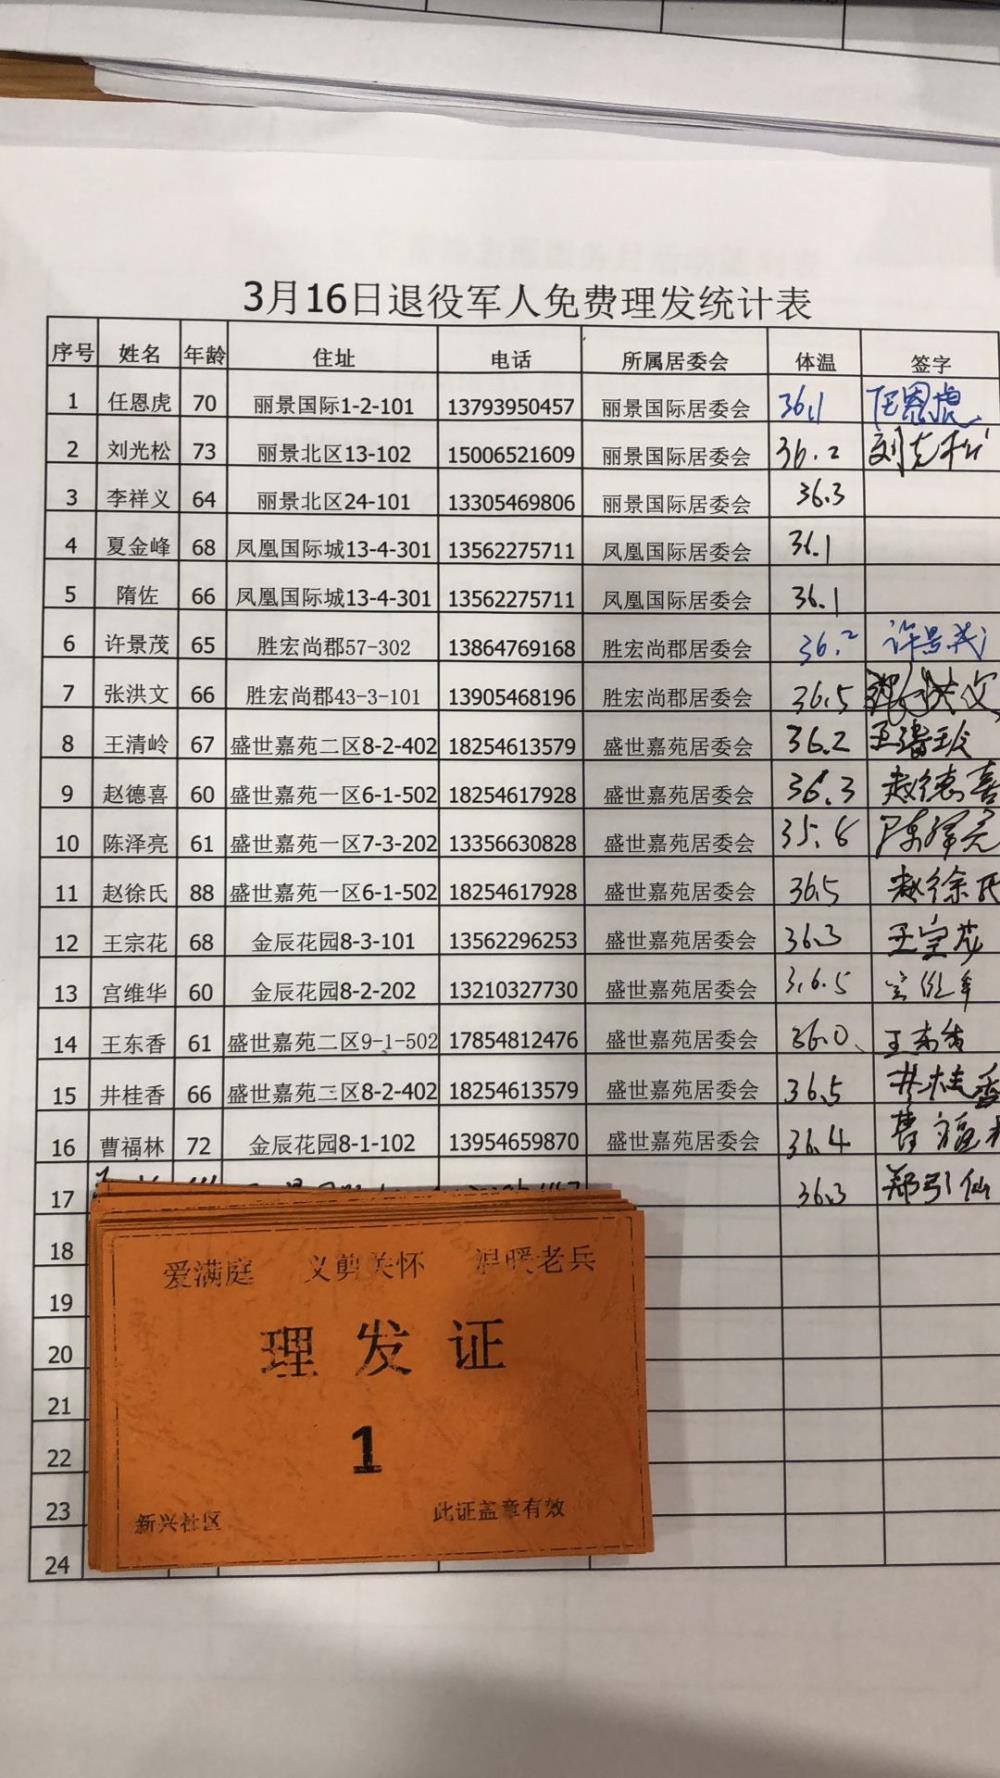 3月16日退役军人免费理发统计表
序号 姓名 年龄 住址 电话 所属居委会 体温 签字
1 任恩虎 70 丽景国际1-2-101 13793950457 丽景国际居委会 36.1 任恩虎
2 刘光松 73 丽景北区13-102 15006521609 丽景国际居委会 36.2 刘光松
3 李祥义 64 丽景北区24-101 13305469806 丽景国际居委会 36.3
4 夏金峰 68 凤凰国际城13-4-301 13562275711 凤凰国际居委会 36.1
5 隋佐 66 凤凰国际城13-4-301 13562275711 凤凰国际居委会 36.1
6 许景茂 65 胜宏尚郡57-302 13864769168 胜宏尚郡居委会 36.2 许景茂
7 张洪文 66 胜宏尚郡43-3-101 13905468196 胜宏尚郡居委会 36.5 张洪文
8 王清岭 67 盛世嘉苑二区8-2-402 18254613579 盛世嘉苑居委会 36.2
9 赵德喜 60 盛世嘉苑一区6-1-502 18254617928 盛世嘉苑居委会 36.3 赵德喜
10 陈泽亮 61 盛世嘉苑一区7-3-202 13356630828 盛世嘉苑居委会 35.8 陈泽亮
11 赵徐氏 88 盛世嘉苑一区6-1-502 18254617928 盛世嘉苑居委会 36.5 赵徐氏
12 王宗花 68 金辰花园8-3-101 13562296253 盛世嘉苑居委会 36.3
13 宫维华 60 金辰花园8-2-202 13210327730 盛世嘉苑居委会 36.5
14 王东香 61 盛世嘉苑二区9-1-502 17854812476 盛世嘉苑居委会 36.0 王东香
15 井桂香 66 盛世嘉苑三区8-2-402 18254613579 盛世嘉苑居委会 36.5 井桂香
16 曹福林 72 金辰花园8-1-102 13954659870 盛世嘉苑居委会 36.4 曹福林
17 36.3 郑引仙
18
19
20
21
22
23
24
爱满庭 义剪关怀 温暖老兵
理发证
1
新兴社区 此证盖章有效